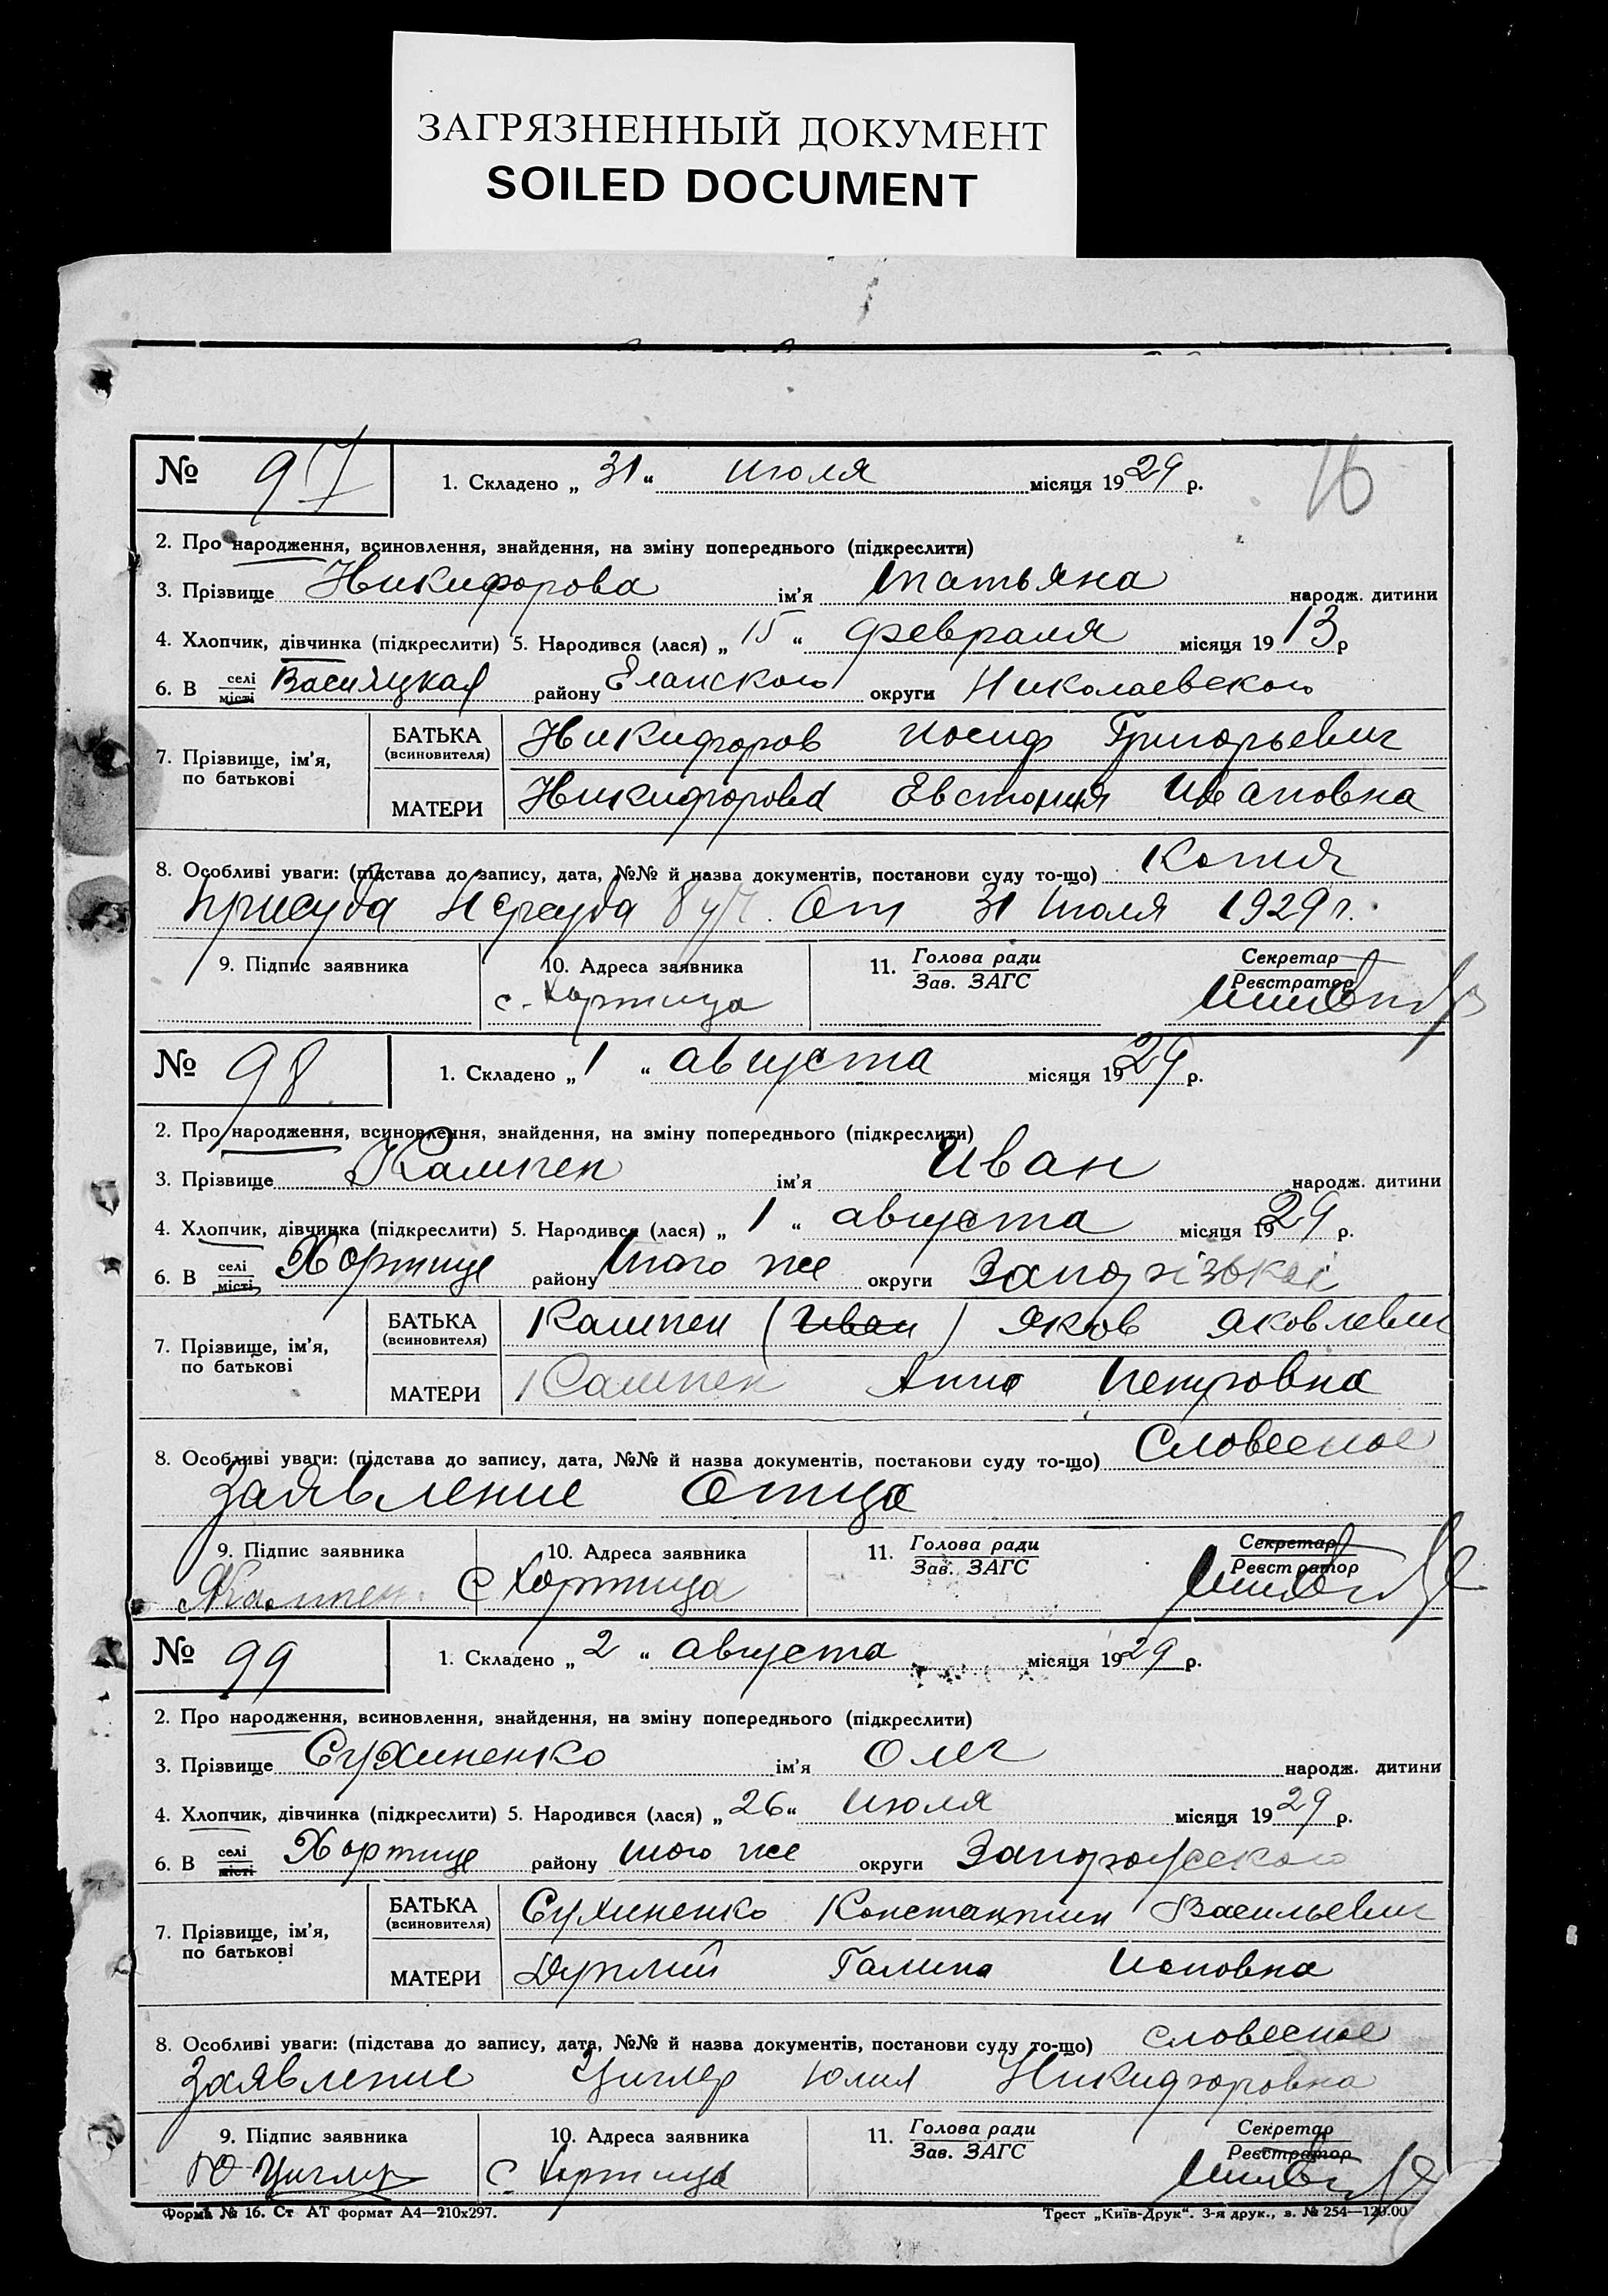 ЗАГРЯЗНЕННЫЙ ДОКУМЕНТ
SOILED DOCUMENT
№ 97 1. Складено „ 31 “ Июля місяця 1929 р. 16
2. Про народження, всиновлення, знайдення, на зміну попереднього (підкреслити)
3. Прізвище Никифорова ім'я Татьяна народж. дитини
4. Хлопчик, дівчинка (підкреслити) 5. Народився (лася) „ 15 “ февраля місяця 1913 р
6. В селі місті району Еланского округи Николаевского
7. Прізвище, ім'я, по батькові БАТЬКА (всиновителя) Никифоров Иосиф Григорьевич
МАТЕРИ Никифорова Ивановна
8. Особливі уваги: (підстава до запису, дата, №№ й назва документів, постанови суду то-що) Копия
присуда Нарсуда От 31 Июля 1929 г.
9. Підпис заявника 10. Адреса заявника 11. Голова ради Зав. ЗАГС Секретар Реєстратор
с. Хортица
№ 98 1. Складено „ 1 “ августа місяця 1929 р.
2. Про народження, всиновлення, знайдення, на зміну попереднього (підкреслити)
3. Прізвище Кампен ім'я Иван народж. дитини
4. Хлопчик, дівчинка (підкреслити) 5. Народився (лася) „ 1 “ августа місяця 1929 р.
6. В селі місті Хортице району того же округи Запорізької
7. Прізвище, ім'я, по батькові БАТЬКА (всиновителя) Кампен (Иван) Яков Яковлевич
МАТЕРИ Кампен Анна Петровна
8. Особливі уваги: (підстава до запису, дата, №№ й назва документів, постанови суду то-що) Словесное
Заявление Отца
9. Підпис заявника 10. Адреса заявника 11. Голова ради Зав. ЗАГС Секретар Реєстратор
ЯКампен С Хортица
№ 99 1. Складено „ 2 “ августа місяця 1929 р.
2. Про народження, всиновлення, знайдення, на зміну попереднього (підкреслити)
3. Прізвище Сухиненко ім'я Олег народж. дитини
4. Хлопчик, дівчинка (підкреслити) 5. Народився (лася) „ 26 “ Июля місяця 1929 р.
6. В селі місті Хортице району того же округи Запорожского
7. Прізвище, ім'я, по батькові БАТЬКА (всиновителя) Сухиненко Константин Васильевич
МАТЕРИ Галина
8. Особливі уваги: (підстава до запису, дата, №№ й назва документів, постанови суду то-що) словесное
Заявление Циглер Юлия Никифоровна
9. Підпис заявника 10. Адреса заявника 11. Голова ради Зав. ЗАГС Секретар Реєстратор
Ю Циглер С. Хортица
Форма № 16. Ст АТ формат А4—210х297. Трест „Київ-Друк“. 3-я друк., з. № 254—120.00